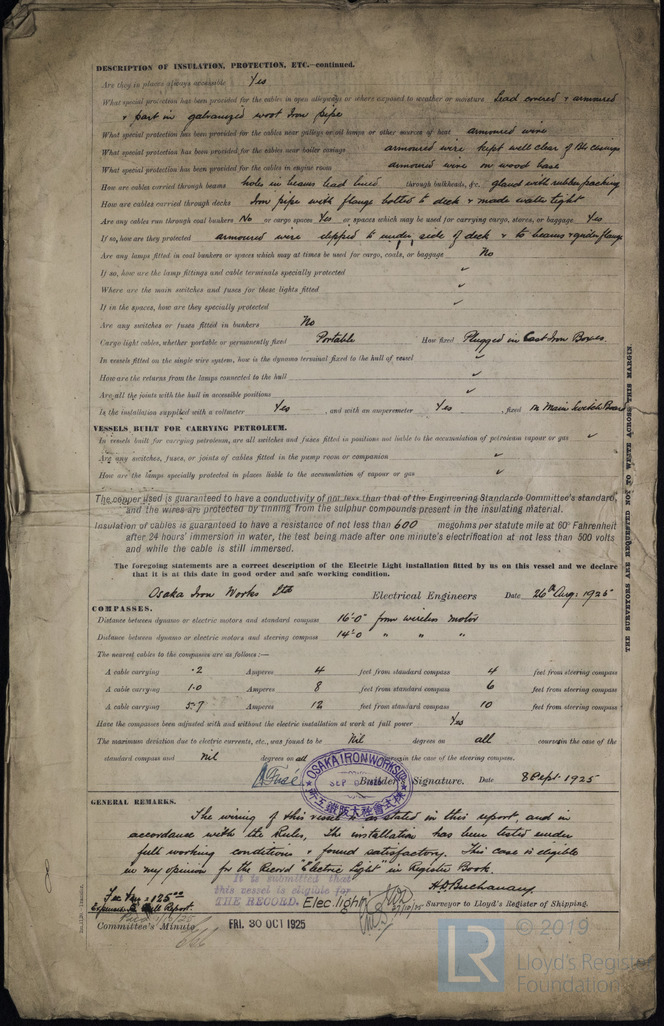 DESCRIPTION OF INSULATION, PROTECTION, ETC.—continued.
Are they in places always accessible Yes
What special protection has been provided for the cables in open alleyways or where exposed to weather or moisture Lead covered & armoured
& part in galvanized wrot Iron pipe
What special protection has been provided for the cables near galleys or oil lamps or other sources of heat armoured wire
What special protection has been provided for the cables near boiler casings armoured wire kept well clear of Blr casings
What special protection has been provided for the cables in engine room armoured wire on wood base
How are cables carried through beams holes in beams lead lined through bulkheads, &c. gland with rubber packing
How are cables carried through decks Iron pipe with flange bolted to deck & made water tight
Are any cables run through coal bunkers No or cargo spaces Yes or spaces which may be used for carrying cargo, stores, or baggage Yes
If so, how are they protected armoured wire clipped to under side of deck & to beams & girder flange
Are any lamps fitted in coal bunkers or spaces which may at times be used for cargo, coals, or baggage No
If so, how are the lamp fittings and cable terminals specially protected ✓
Where are the main switches and fuses for these lights fitted ✓
If in the spaces, how are they specially protected ✓
Are any switches or fuses fitted in bunkers No
Cargo light cables, whether portable or permanently fixed Portable How fixed Plugged in Cast Iron Boxes.
In vessels fitted on the single wire system, how is the dynamo terminal fixed to the hull of vessel ✓
How are the returns from the lamps connected to the hull ✓
Are all the joints with the hull in accessible positions ✓
Is the installation supplied with a voltmeter Yes , and with an amperemeter Yes , fixed on Main Switch Board
VESSELS BUILT FOR CARRYING PETROLEUM.
In vessels built for carrying petroleum, are all switches and fuses fitted in positions not liable to the accumulation of petroleum vapour or gas ✓
Are any switches, fuses, or joints of cables fitted in the pump room or companion ✓
How are the lamps specially protected in places liable to the accumulation of vapour or gas ✓
The copper used is guaranteed to have a conductivity of not less than that of the Engineering Standards Committee's standard,
and the wires are protected by tinning from the sulphur compounds present in the insulating material.
Insulation of cables is guaranteed to have a resistance of not less than 600 megohms per statute mile at 60° Fahrenheit
after 24 hours' immersion in water, the test being made after one minute's electrification at not less than 500 volts
and while the cable is still immersed.
The foregoing statements are a correct description of the Electric Light installation fitted by us on this vessel and we declare
that it is at this date in good order and safe working condition.
Osaka Iron Works Ltd Electrical Engineers Date 26th Aug: 1925
COMPASSES.
Distance between dynamo or electric motors and standard compass 16'-0" from wireless motor
Distance between dynamo or electric motors and steering compass 14'-0 " " "
The nearest cables to the compasses are as follows:—
A cable carrying .2 Amperes 4 feet from standard compass 4 feet from steering compass
A cable carrying 1.0 Amperes 8 feet from standard compass 6 feet from steering compass
A cable carrying 5.7 Amperes 12 feet from standard compass 10 feet from steering compass
Have the compasses been adjusted with and without the electric installation at work at full power Yes
The maximum deviation due to electric currents, etc., was found to be Nil degrees on all course in the case of the
standard compass and nil degrees on all course in the case of the steering compass.
OSAKA IRON WORKS LTD
SEP 8 1925
Builder's Signature. Date 8 Sept 1925
GENERAL REMARKS.
The wiring of this vessel is as stated in this report, and in
accordance with the Rules, The installation has been tested under
full working conditions & found satisfactory. This case is eligible
in my opinion for the Record "Electric Light" in Register Book.
It is submitted that
this vessel is eligible for
THE RECORD. Elec. light
H.D. Buchanan
Surveyor to Lloyd's Register of Shipping.
Committee's Minute FRI. 30 OCT 1925
666
THE SURVEYORS ARE REQUESTED NOT TO WRITE ACROSS THIS MARGIN.
© 2019
LR
Lloyd's Register
Foundation